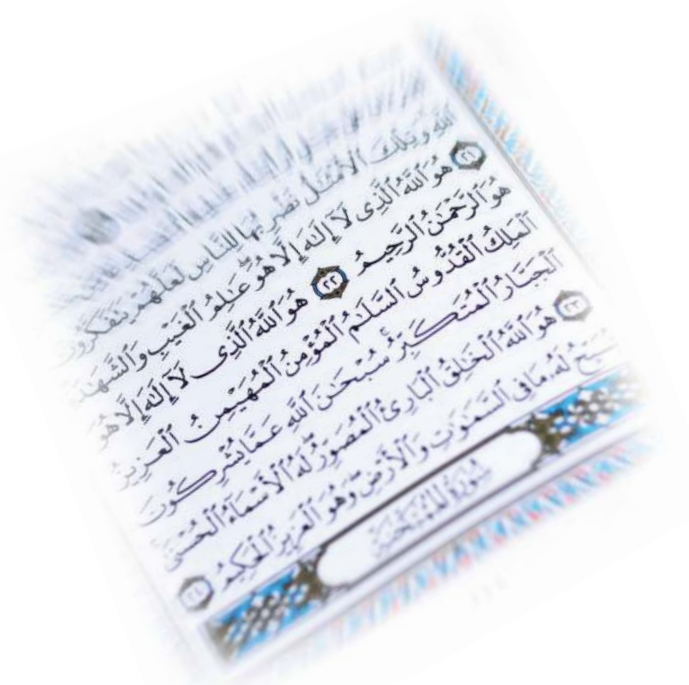 اللَّهِ وَتِلْكَ الْأَمْثَالُ نَضْرِبُهَا لِلنَّاسِ لَعَلَّهُمْ يَتَفَكَّرُونَ
﴿٢١﴾ هُوَ اللَّهُ الَّذِى لَآ إِلَٰهَ إِلَّا هُوَ عَٰلِمُ الْغَيْبِ وَالشَّهَٰدَةِ
هُوَ الرَّحْمَٰنُ الرَّحِيمُ ﴿٢٢﴾ هُوَ اللَّهُ الَّذِى لَآ إِلَٰهَ إِلَّا هُوَ
الْمَلِكُ الْقُدُّوسُ السَّلَٰمُ الْمُؤْمِنُ الْمُهَيْمِنُ الْعَزِيزُ
الْجَبَّارُ الْمُتَكَبِّرُ سُبْحَٰنَ اللَّهِ عَمَّا يُشْرِكُونَ
﴿٢٣﴾ هُوَ اللَّهُ الْخَٰلِقُ الْبَارِئُ الْمُصَوِّرُ لَهُ الْأَسْمَآءُ الْحُسْنَىٰ
يُسَبِّحُ لَهُۥ مَا فِى السَّمَٰوَٰتِ وَالْأَرْضِ وَهُوَ الْعَزِيزُ الْحَكِيمُ ﴿٢٤﴾
سُورَةُ الْمُمْتَحَنَةِ